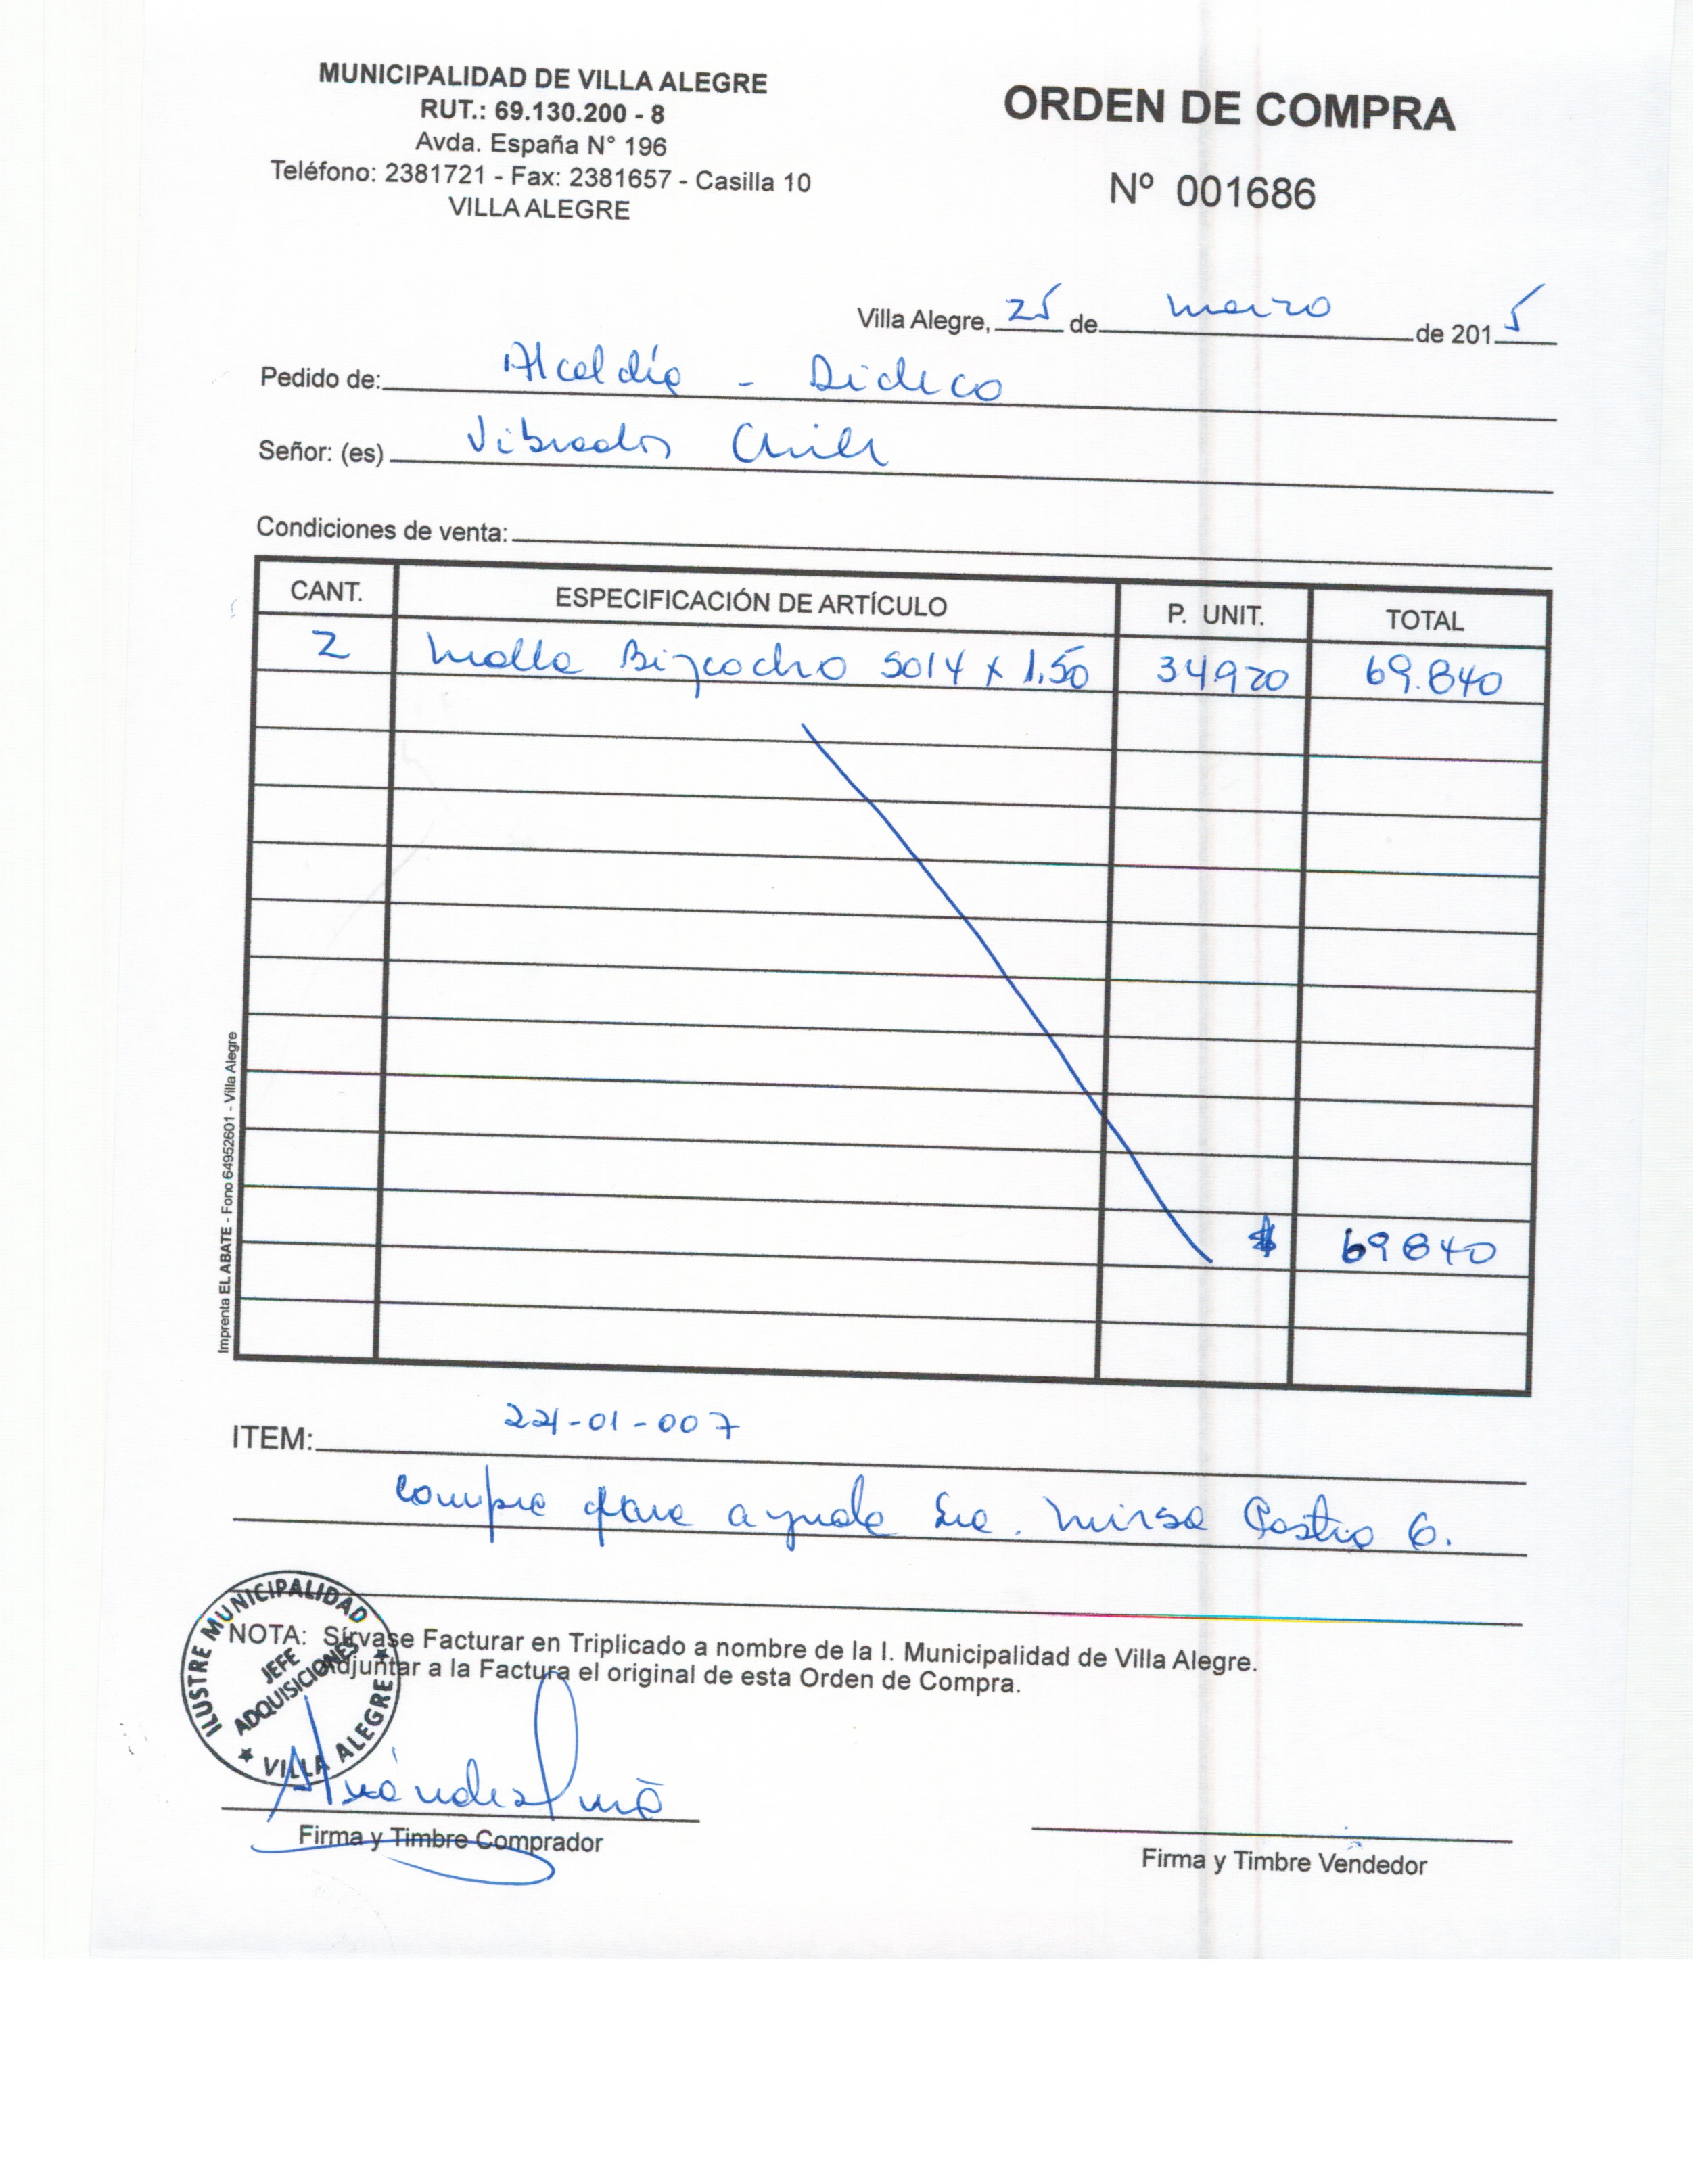 MUNICIPALIDAD DE VILLA ALEGRE
RUT.: 69.130.200 - 8
Avda. España N° 196
Teléfono: 2381721 - Fax: 2381657 - Casilla 10
VILLA ALEGRE
ORDEN DE COMPRA
Nº 001686
Villa Alegre, 25 de marzo de 2015
Pedido de: Alcaldía - Dideco
Señor: (es) Vibrados Chile
Condiciones de venta:
CANT. ESPECIFICACIÓN DE ARTÍCULO P. UNIT. TOTAL
2 Malla Bizcocho 5014 x 1.50 34920 69.840
$ 69840
Imprenta EL ABATE - Fono 64952601 - Villa Alegre
ITEM: -01-007
Compra para ayuda Sra. Mirsa Castro G.
NOTA: Sírvase Facturar en Triplicado a nombre de la I. Municipalidad de Villa Alegre.
Adjuntar a la Factura el original de esta Orden de Compra.
ILUSTRE MUNICIPALIDAD
JEFE
ADQUISICIONES
★ VILLA ALEGRE ★
Firma y Timbre Comprador
Firma y Timbre Vendedor